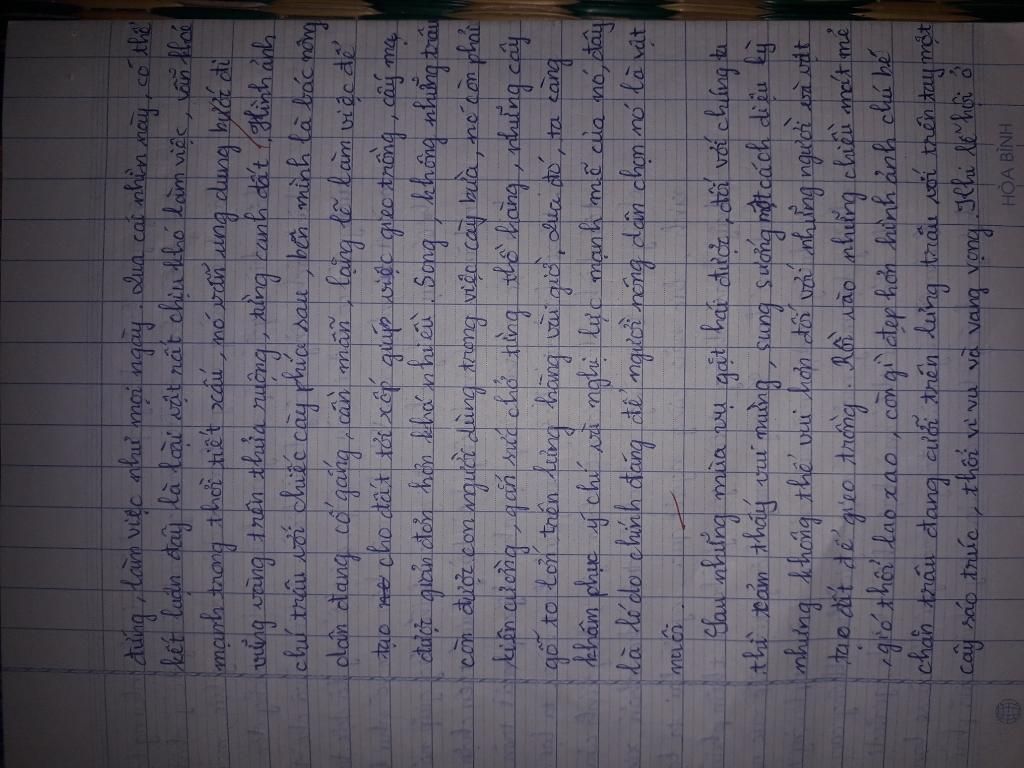 đúng, làm việc như mọi ngày. Qua cái nhìn này, có thể
kết luận đây là loài vật rất chịu khó làm việc, vẫn khoẻ
mạnh trong thời tiết xấu, nó vẫn ung dung bước đi
vững vàng trên thửa ruộng, từng canh đất. Hình ảnh
chú trâu với chiếc cày phía sau, bên mình là bác nông
dân đang cố gắng, cần mẫn, lặng lẽ làm việc để
tạo cho đất tơi xốp giúp việc gieo trồng, cấy mạ
được giản đơn hơn khá nhiều. Song, không những trâu
còn được con người dùng trong việc cày bừa, nó còn phải
kiên cường, gắn sức chở từng thồ hàng, những cây
gỗ to lớn trên lưng hàng vài giờ. Qua đó, ta càng
khâm phục ý chí và nghị lực mạnh mẽ của nó, đây
là lí do chính đáng để người nông dân chọn nó là vật
nuôi.
Sau những mùa vụ gặt hái được, đối với chúng ta
thì cảm thấy vui mừng, sung sướng một cách diệu kỳ
nhưng không thể vui hơn đối với những người và vật
tạo đất để gieo trồng. Rồi vào những chiều mát mẻ
, gió thổi lao xao, còn gì đẹp hơn hình ảnh chú bé
chăn trâu đang cưỡi trên lưng trâu với trên tay một
cây sáo trúc, thổi vi vu và vang vọng. Khi lễ hội ở
HÒA BÌNH